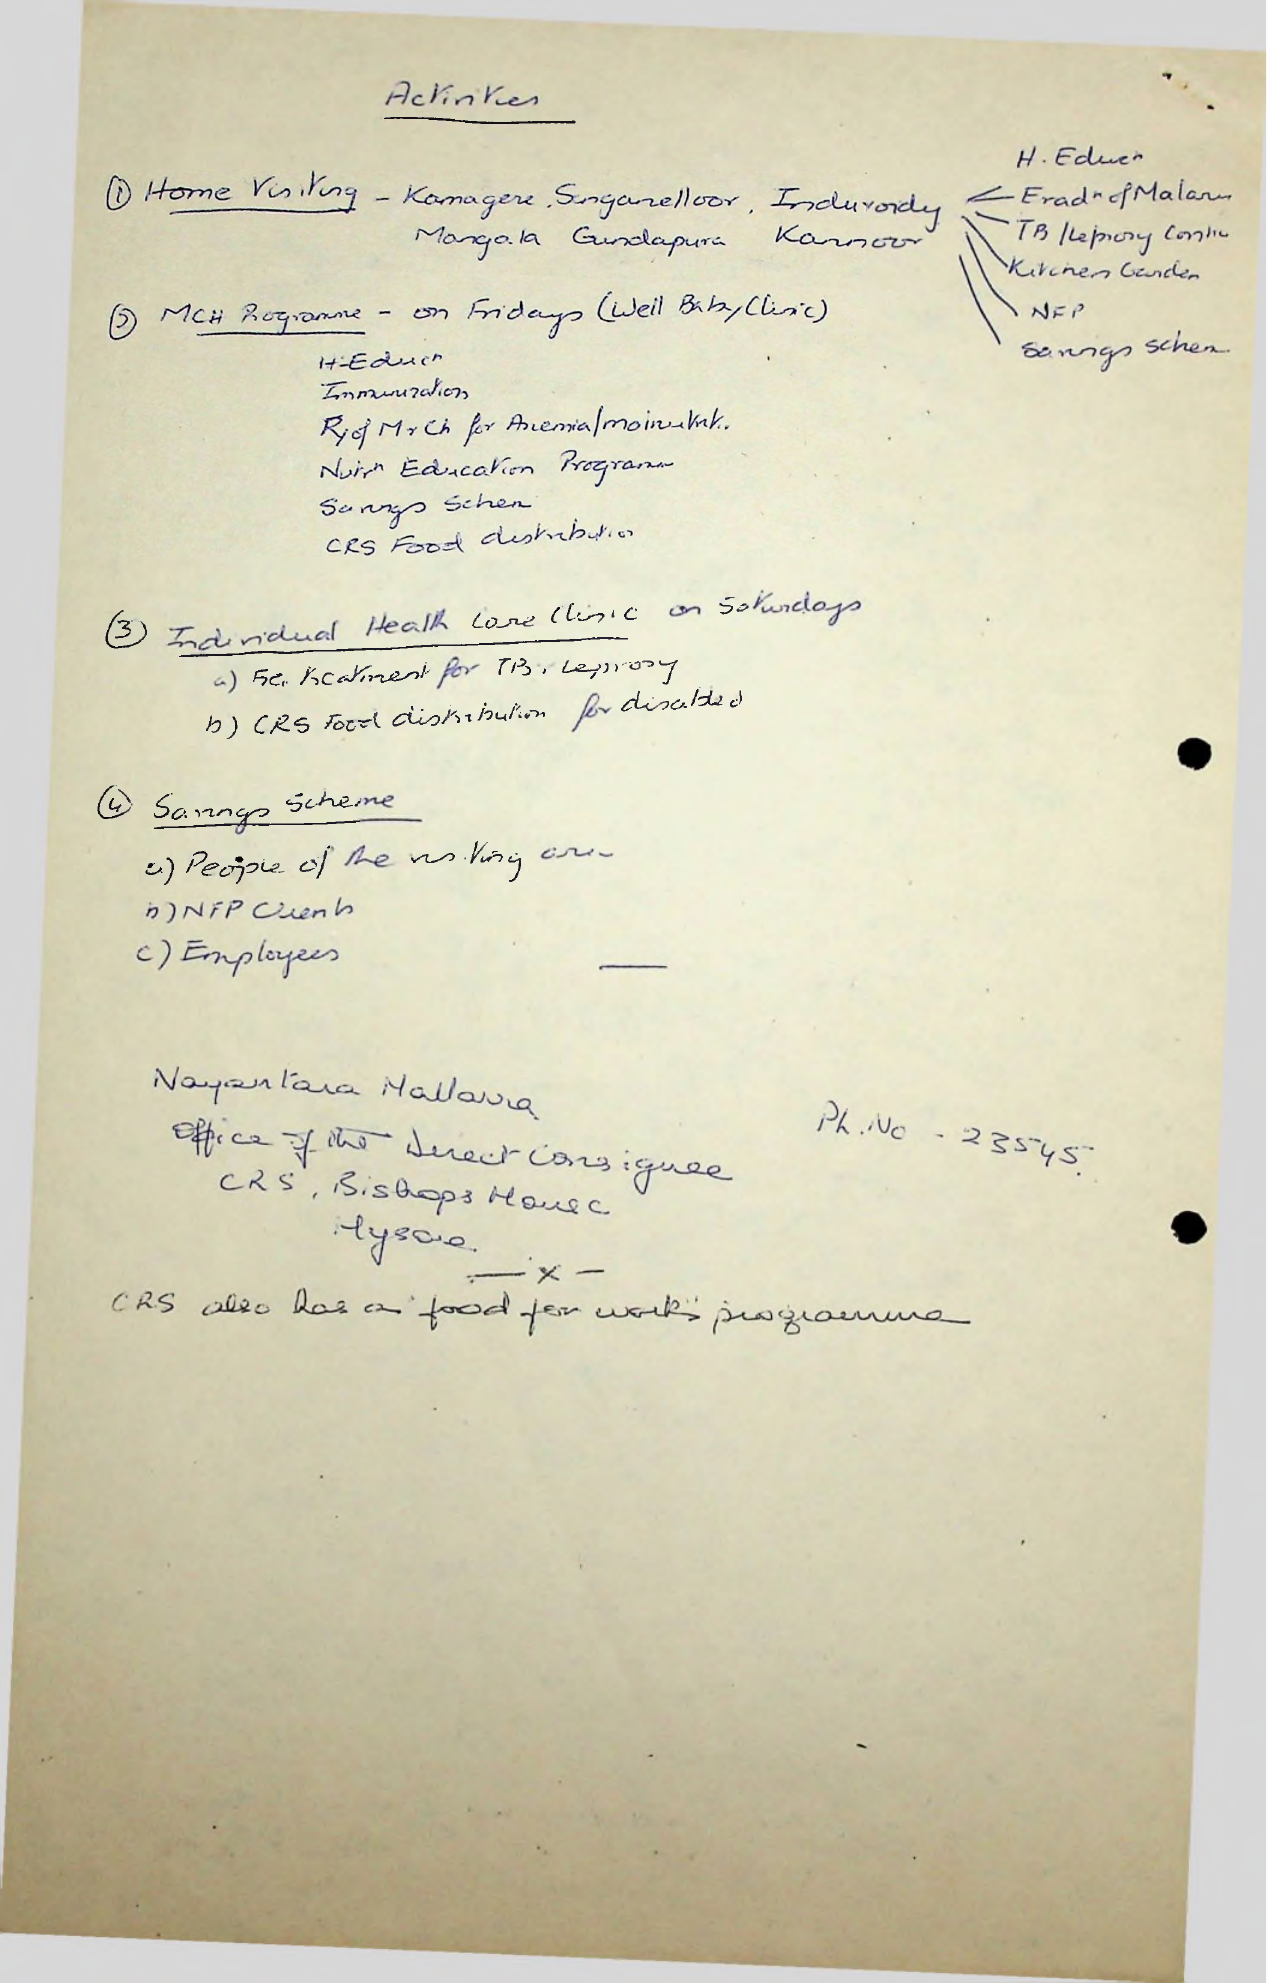 Activities
① Home Visiting - Kamagere, Singanelloor, Induvoidy
Mangala Gundapura Kannoor
H. Educn
Eradn of Malaria
TB / Leprosy Contr
Kitchen Garden
NFP
Savings Schem
② MCH Programme - on Fridays (Well Baby Clinic)
H. Educn
Immunization
Rx of M & Ch for Anemia/malnutrit.
Nutrn Education Programm
Savings Schem
CRS Food distribution
③ Individual Health Care Clinic on Saturdays
a) treatment for TB, Leprosy
b) CRS Food distribution for disabled
④ Savings Scheme
a) People of the visiting area
b) NFP Clients
c) Employees
Nayantara Mallavva
Office of the Direct Consignee
CRS, Bishops House
Mysore.
Ph. No - 23545.
— x —
CRS also has a "food for work" programme